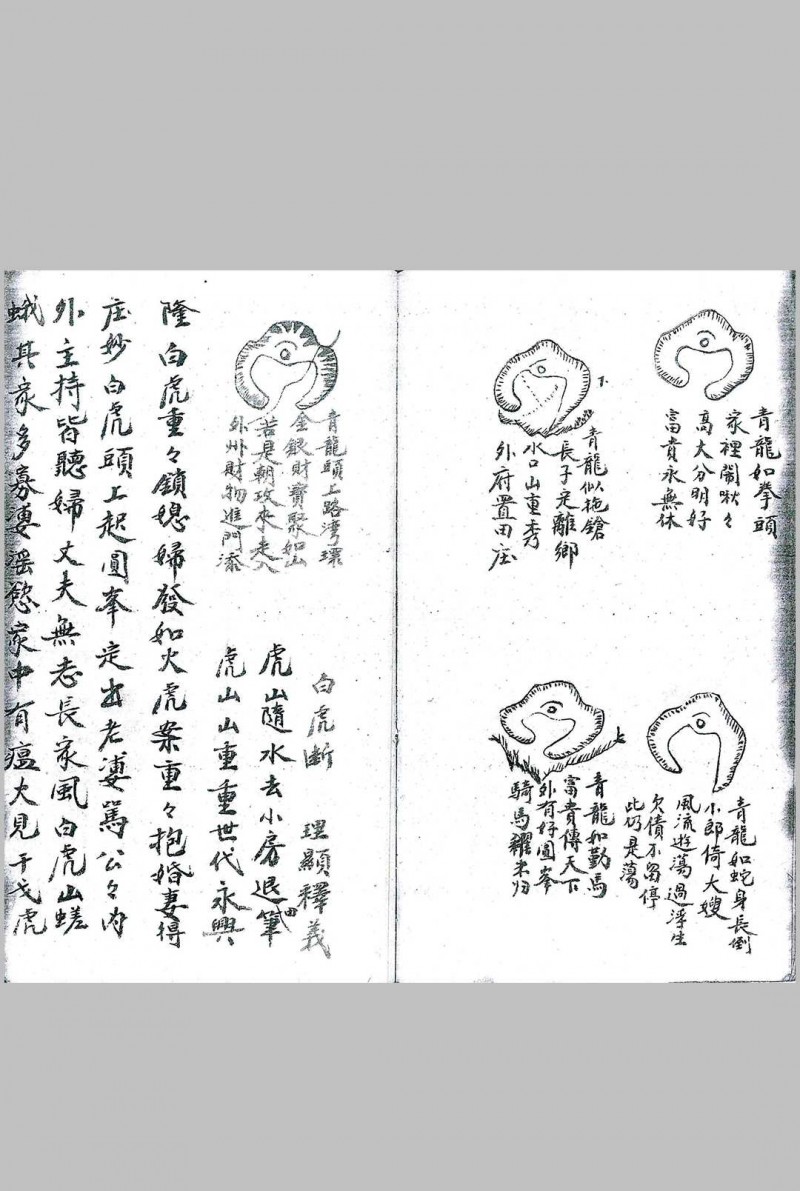 青龍如拳頭
家裡鬧啾々
高大分明好
富貴永無休
青龍似拖鎗
長子定離鄉
水口山重秀
外府置田庄
青龍如蛇身長倒
小郎倚大嫂
風流遊蕩過浮生
欠債不留停
此仍是蕩
青龍如勒馬
富貴傳天下
外有好圓峯
騎馬耀米归
青龍頭上路灣環
金銀財寶聚如山
若是朝攻來走入
外州財物進門添
白虎斷 理顯釋義
虎山隨水去小房退田筆
虎山山重重世代永興
隆白虎重々鎖媳婦發如火虎案重々抱婚妻得
庄妙白虎頭上起圓峯定出老婆罵公々內
外主持皆聽婦丈夫無志長家風白虎山嵯
峨其家多寡妻滛慾家中有瘟火見干戈虎